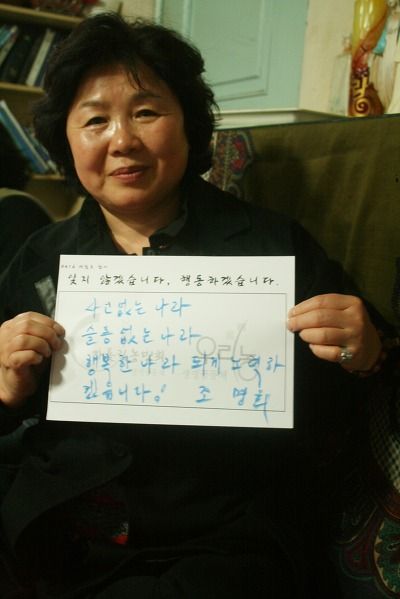 잊지 않겠습니다, 행동하겠습니다.
사고없는 나라
슬픔 없는 나라
행복한 나라 되게 노력하
겠습니다! 조 명희